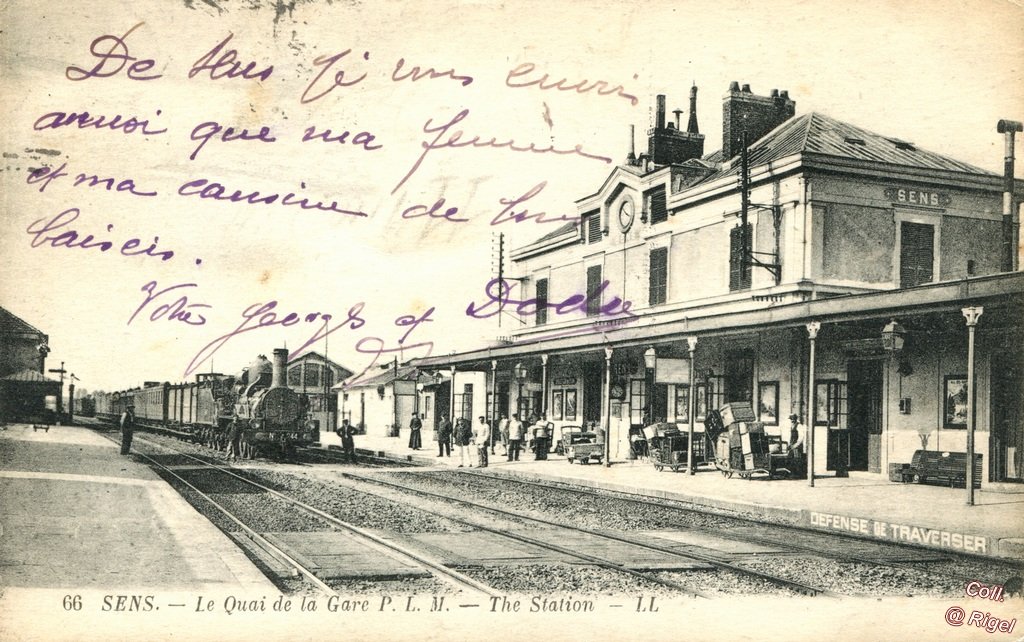 De Sens Je vous envois
ainsi que ma femme
et ma cousine de bons
baisers.
Votre Georges et Dodu
SENS
DEFENSE DE TRAVERSER
66 SENS. — Le Quai de la Gare P. L. M. — The Station — LL
Coll.
@ Rigel